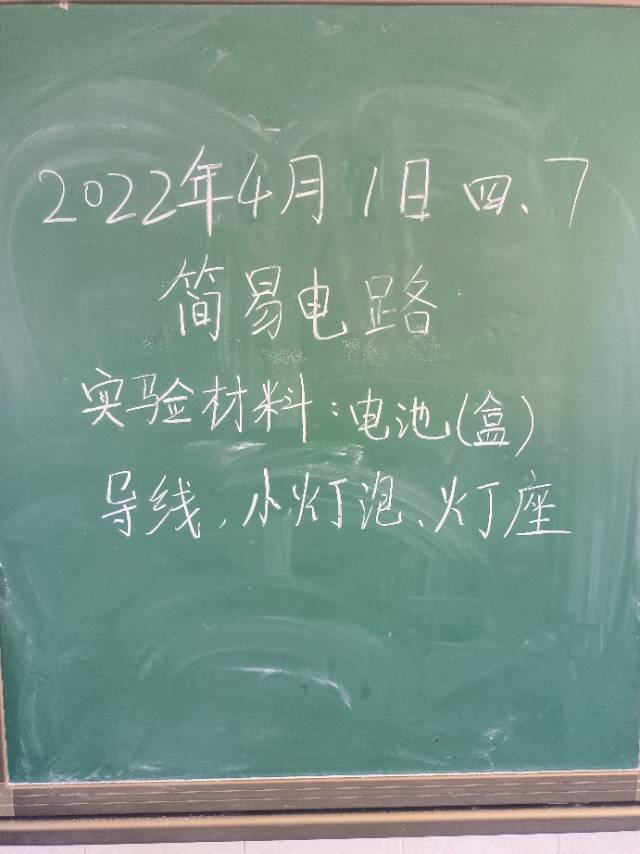 2022年4月1日 四、7
简易电路
实验材料：电池(盒)
导线、小灯泡、灯座